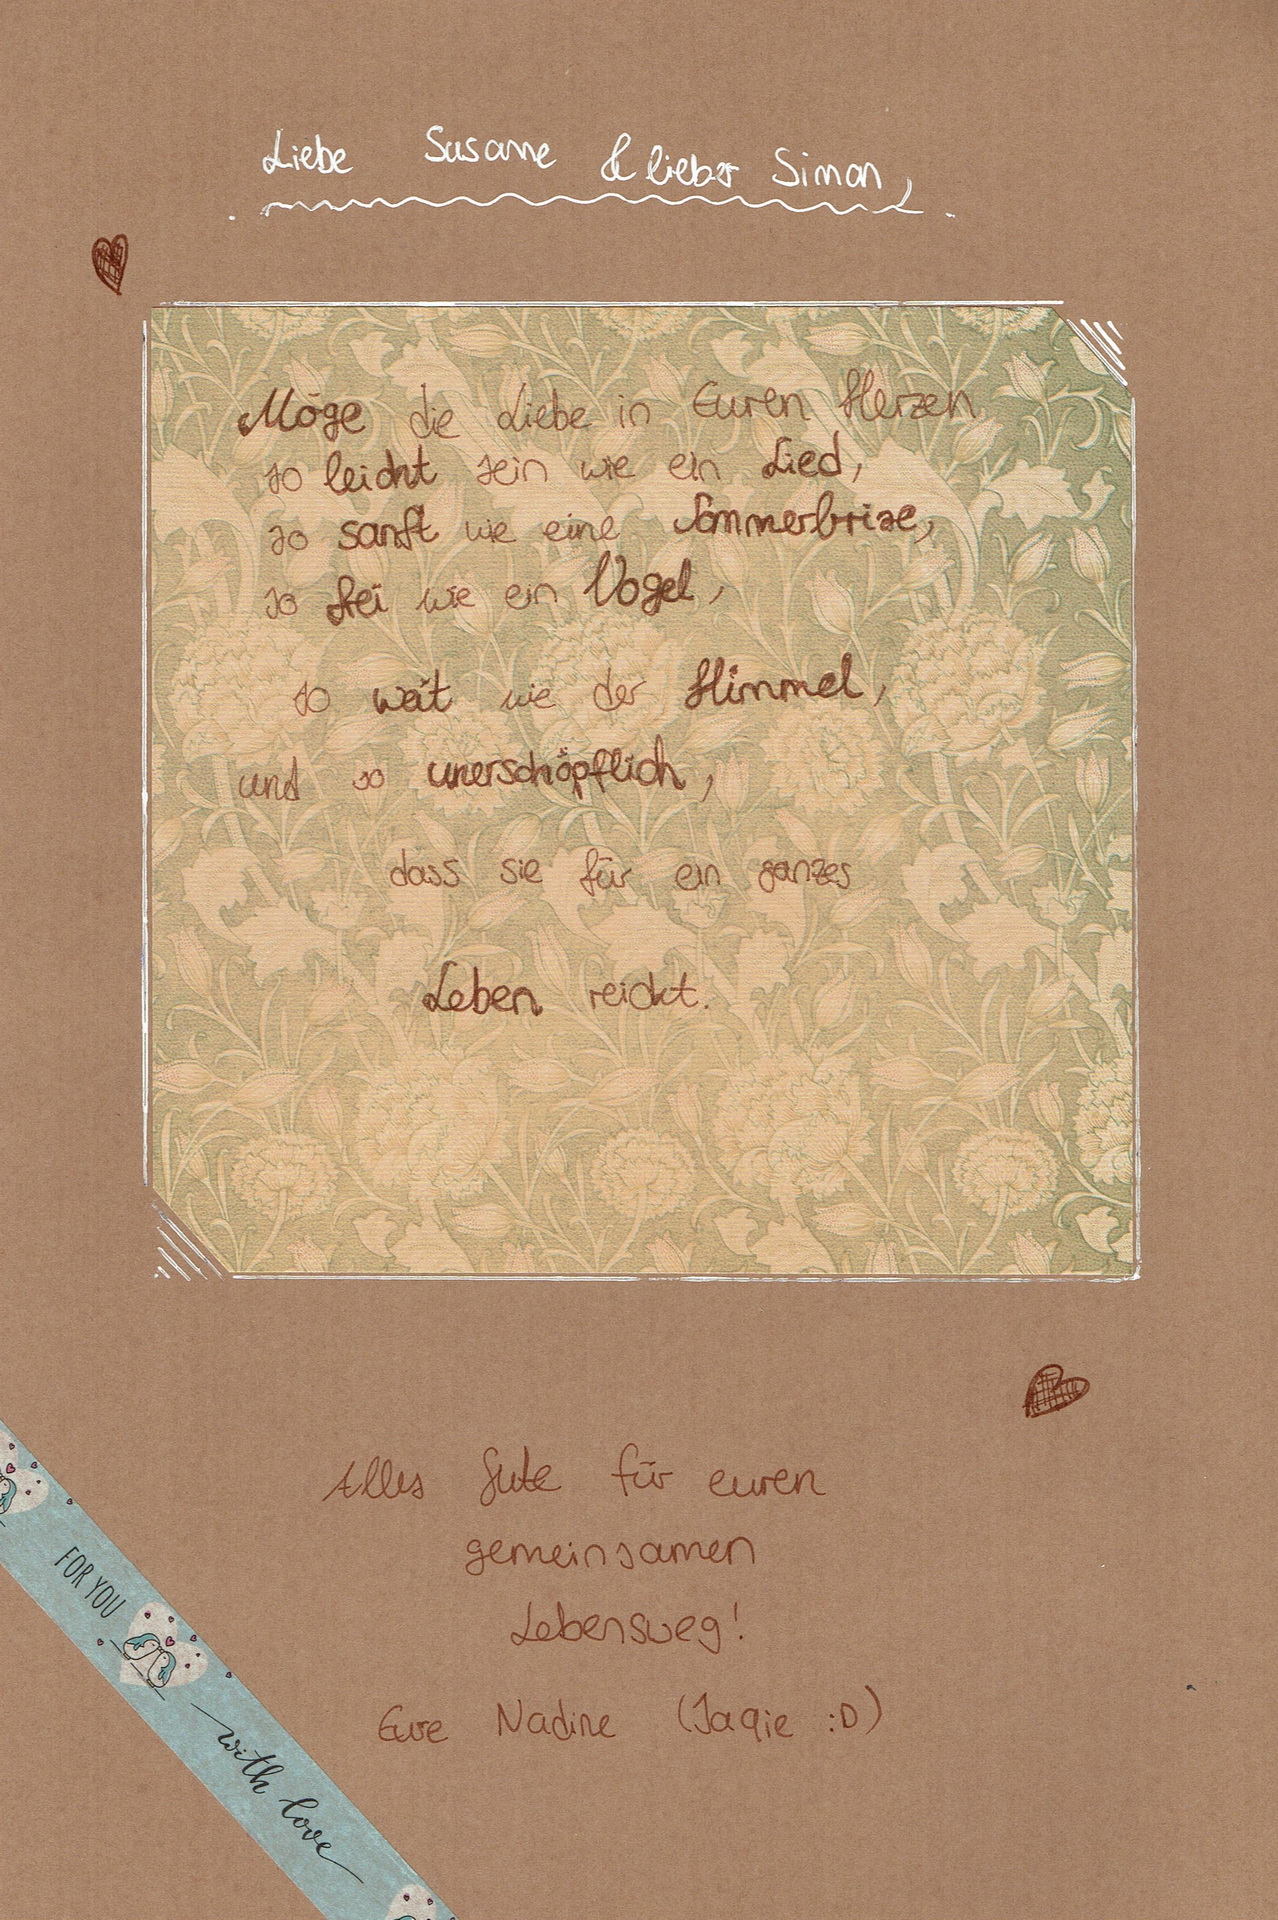 Liebe Susanne & lieber Simon,
Möge die Liebe in Euren Herzen
so leicht sein wie ein Lied,
so sanft wie eine Sommerbrise,
so frei wie ein Vogel,
so weit wie der Himmel,
und so unerschöpflich,
dass sie für ein ganzes
Leben reicht.
Alles Gute für euren
gemeinsamen
Lebensweg!
Eure Nadine (Jaqie :D)
FOR YOU
with love